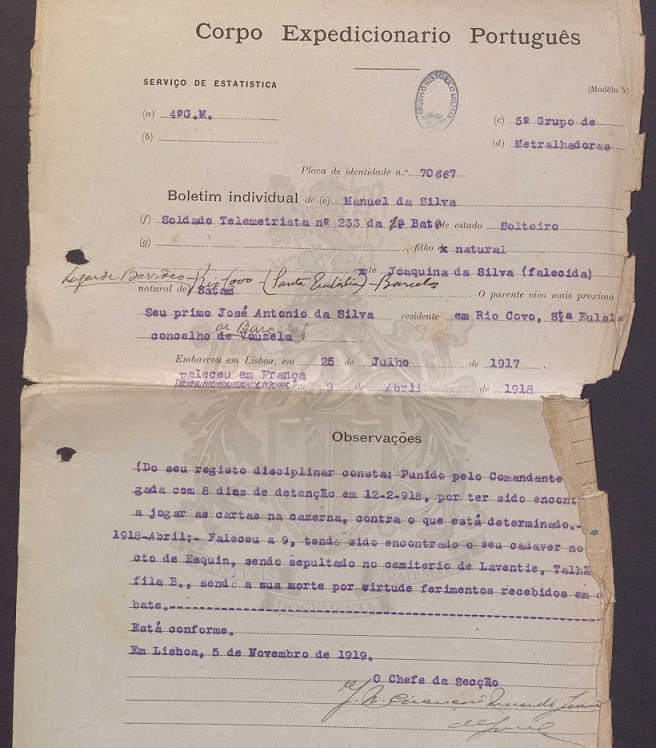 Corpo Expedicionario Português
SERVIÇO DE ESTATISTICA
ARQUIVO HISTÓRICO MILITAR
(Modêlo 5)
(a) 4ºG.M.
(c) 5º Grupo de
(b)
(d) Metralhadoras
Placa de identidade n.º 70667
Boletim individual de (e) Manuel da Silva
(f) Soldado Telemetrista nº 233 da Bat de estado Solteiro
(g) filho x natural
x de Joaquina da Silva (falecida)
Lugar de Barrôco - Rio Covo (Santa Eulália) - Barcelos
natural de Satam . O parente vivo mais proximo
Seu primo José Antonio da Silva residente em Rio Covo, Sta Eulal
de Barc
concelho de Vouzela
Embarcou em Lisboa, em 25 de Julho de 1917
Faleceu em França
em 9 de Abril de 1918
Observações
(Do seu registo disciplinar consta: Punido pelo Comandante
gada com 8 dias de detenção em 12-2-918, por ter sido encont
a jogar as cartas na cazerna, contra o que está determinado.-
1918-Abril:- Faleceu a 9, tendo sido encontrado o seu cadaver no
cto de Esquin, sendo sepultado no cemiterio de Laventie, Talhã
fila B., sendo a sua morte por virtude ferimentos recebidos em
bate.-
Está conforme.
Em Lisboa, 5 de Novembro de 1919.
O Chefe da Secção